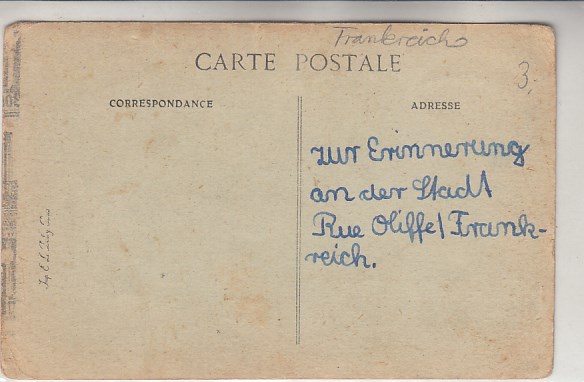 Frankreich
CARTE POSTALE
3.
CORRESPONDANCE
ADRESSE
zur Erinnerung
an der Stadt
Rue Oliffe/Frank-
reich.